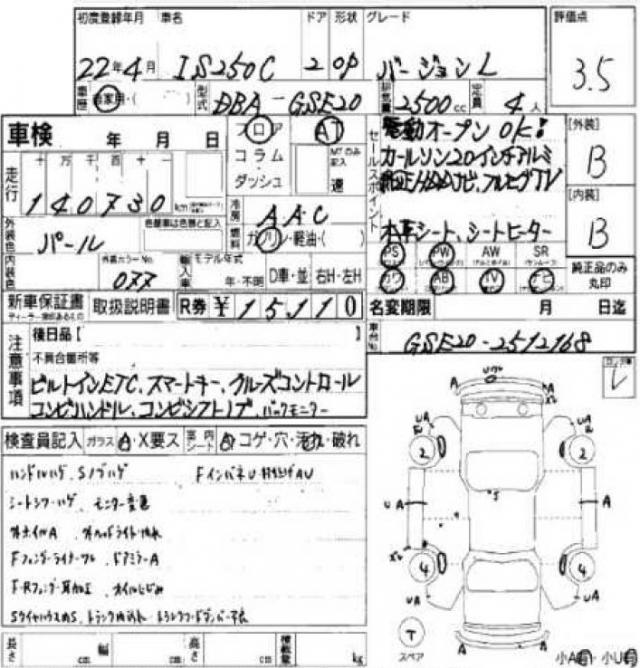 初度登録年月 車名 ドア 形状 グレード 評価点
22年4月 IS250C 2 OP バージョンL 3.5
車歴 自家用・( ) 型式 DBA-GSE20 排気量 2500cc 定員 4人
車検 年 月 日 フロア AT 電動オープン OK! [外装]
コラム・ MTのみ記入 カールソン20インチアルミ B
走行 十 万 千 百 十 一 ダッシュ 速 純正HDDナビ、フルセグTV
140730km 冷房 AAC セールスポイント [内装]
外装色 パール 色替車は色替と記入 燃料 ガソリン・軽油・( ) 本革シート、シートヒーター B
PS PW AW SR
内装色 外装カラーNo. 077 輸入車 モデル年式 年・不明 D車・並 右H・左H カワ AB TV ナビ 純正品のみ丸印
新車保証書 取扱説明書 R券 ¥15110 名変期限 月 日迄
ディーラー捺印あるもの
後日品[ ] 車台No. GSE20-2512168
注意事項 不具合箇所等
ビルトインETC、スマートキー、クルーズコントロール
コンビハンドル、コンビシフトノブ、バックモニター
検査員記入 ガラス A・X要ス 室内シート A・コゲ・穴・汚れ・破れ
ハンドルハゲ、Sノブハゲ Fインパネ U
シートシワ・ハゲ モニター変色
ホイルA
Fフェンダーライナーワレ ドアミラーA
F・Rフェンダー耳加工 オイルにじみ
SタイヤハウスカS
A A
UA UA
2 2
UA S UA
4 4
UA UA
T
スペア A A
長さ cm 幅 cm 高さ cm 積載量 kg 小A 小U